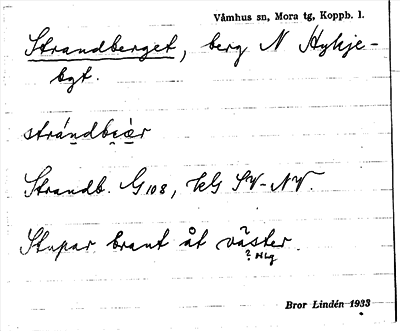 Våmhus sn, Mora tg, Koppb. l.
Strandberget, berg N Hykje-
bgt.
strándbæ̀r
Strandb. G108, kG SV-NV.
Stupar brant åt väster.
? Hlg
Bror Lindén 1933